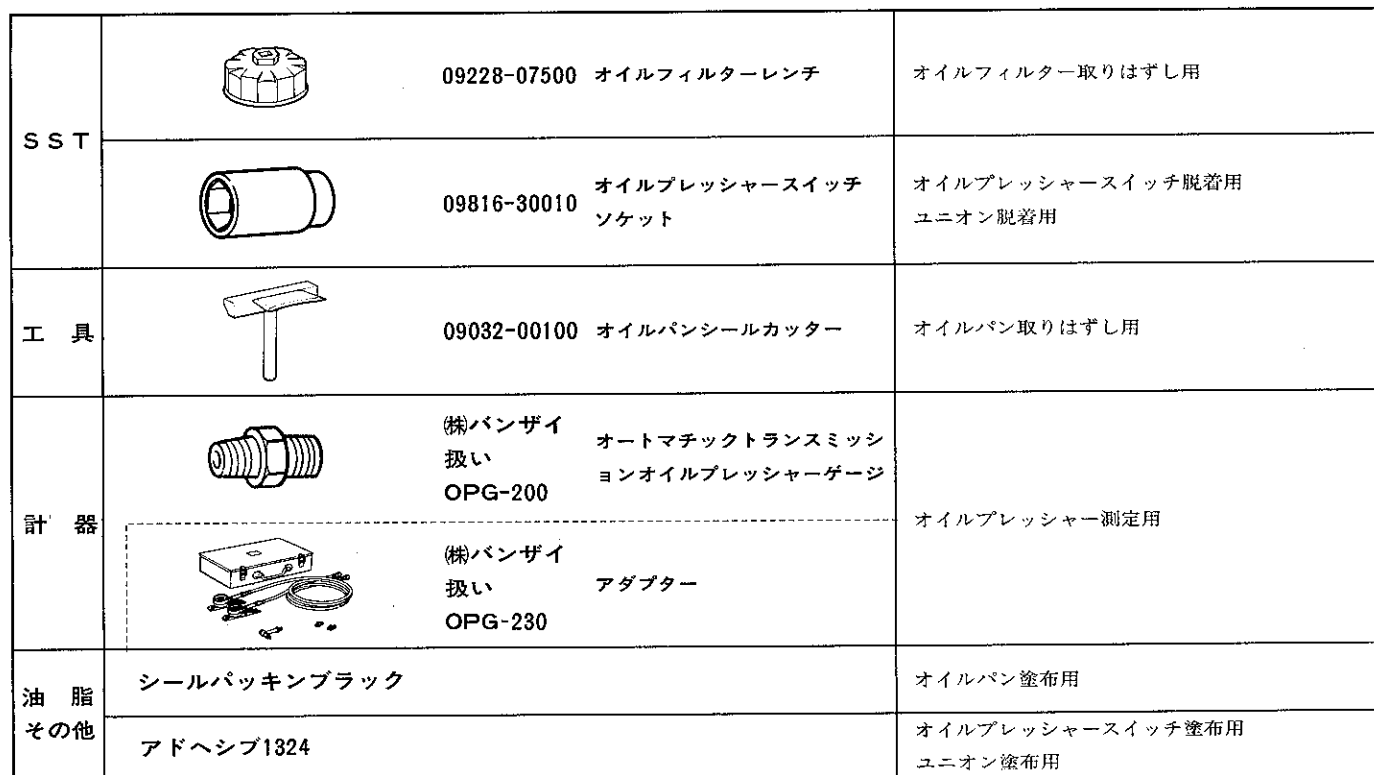 SST
09228-07500 オイルフィルターレンチ
オイルフィルター取りはずし用
09816-30010
オイルプレッシャースイッチ
ソケット
オイルプレッシャースイッチ脱着用
ユニオン脱着用
工 具
09032-00100 オイルパンシールカッター
オイルパン取りはずし用
計 器
㈱バンザイ
扱い
OPG-200
オートマチックトランスミッシ
ョンオイルプレッシャーゲージ
オイルプレッシャー測定用
㈱バンザイ
扱い
OPG-230
アダプター
油 脂
その他
シールパッキンブラック
オイルパン塗布用
アドヘシブ1324
オイルプレッシャースイッチ塗布用
ユニオン塗布用